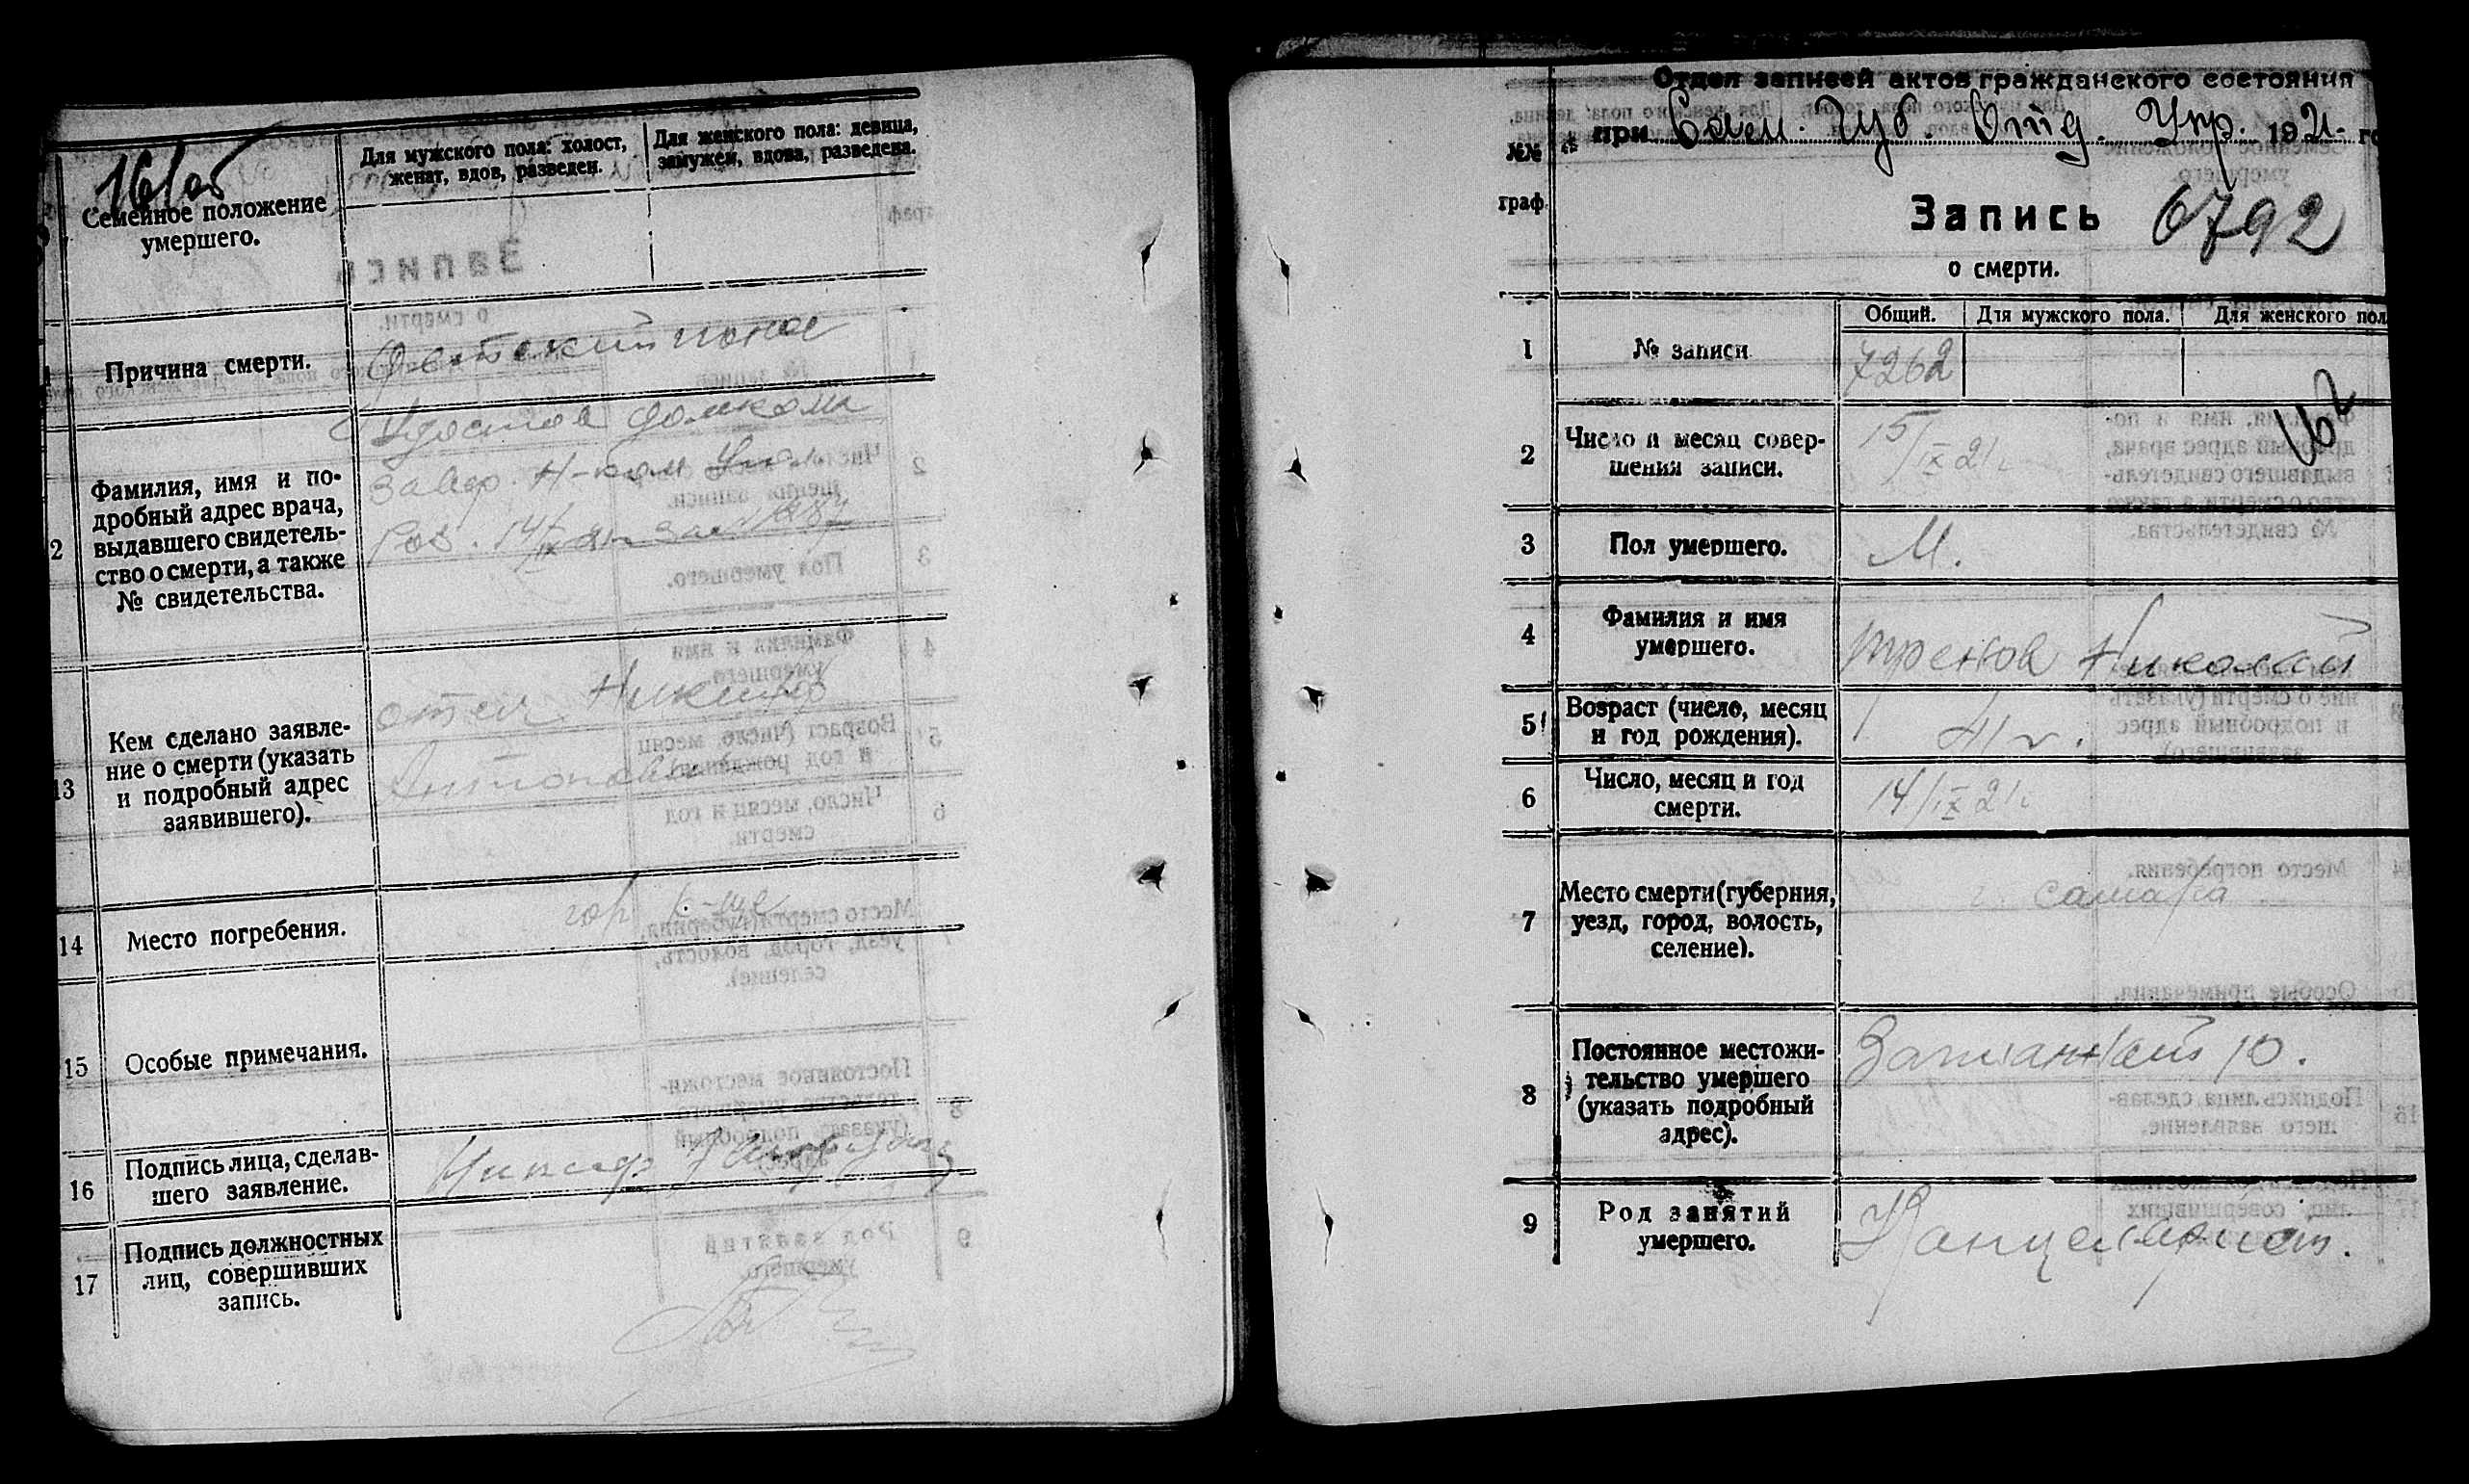 16/об
Семейное положение
умершего.
Для мужского пола: холост,
женат, вдов, разведен.
Для женского пола: девица,
замужем, вдова, разведена.
Причина смерти.
Детский понос
2
Фамилия, имя и по-
дробный адрес врача,
выдавшего свидетель-
ство о смерти, а также
№ свидетельства.
домкома
завер. Н-ком
14/IX 21г за №
13
Кем сделано заявле-
ние о смерти (указать
и подробный адрес
заявившего).
отец
14
Место погребения.
гор к-ще
15
Особые примечания.
16
Подпись лица, сделав-
шего заявление.
17
Подпись должностных
лиц, совершивших
запись.
Отдел записей актов гражданского состояния
при Сам. Губ. Отд. Упр. 1921 го
№№
граф.
Запись 6792
о смерти.
Общий.
Для мужского пола.
Для женского пол
1
№ записи
7262
162
2
Число и месяц совер-
шения записи.
15/IX 21г
3
Пол умершего.
М.
4
Фамилия и имя
умершего.
Николай
5
Возраст (число, месяц
и год рождения).
6
Число, месяц и год
смерти.
14/IX 21г
7
Место смерти (губерния,
уезд, город, волость,
селение).
г. Самара
8
Постоянное местожи-
тельство умершего
(указать подробный
адрес).
10.
9
Род занятий
умершего.
Канцелярист.